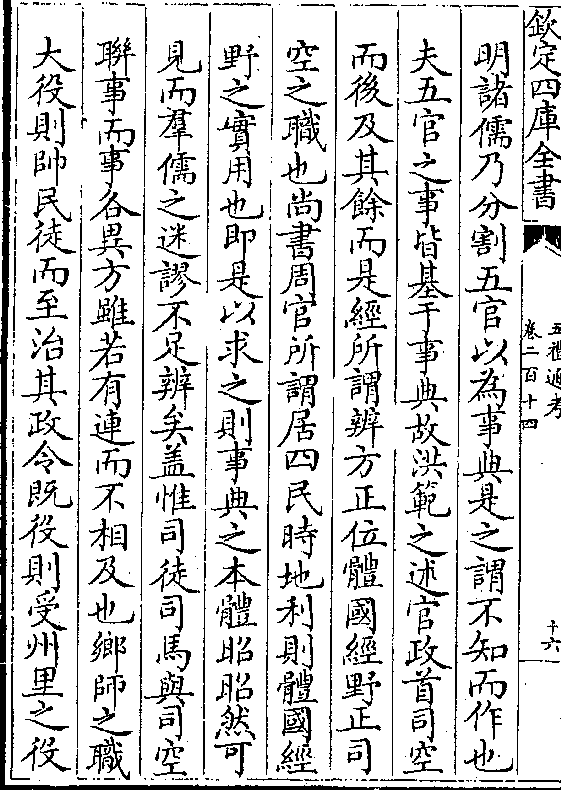 欽定四庫全書
五禮通考
卷二百十四
十六
明諸儒乃分割五官以為事典是之謂不知而作也
夫五官之事皆基于事典故洪範之述官政首司空
而後及其餘而是經所謂辨方正位體國經野正司
空之職也尚書周官所謂居四民時地利則體國經
野之實用也即是以求之則事典之本體昭昭然可
見而羣儒之迷謬不足辨矣盖惟司徒司馬與司空
聯事而事各異方雖若有連而不相及也鄉師之職
大役則帥民徒而至治其政令既役則受州里之役